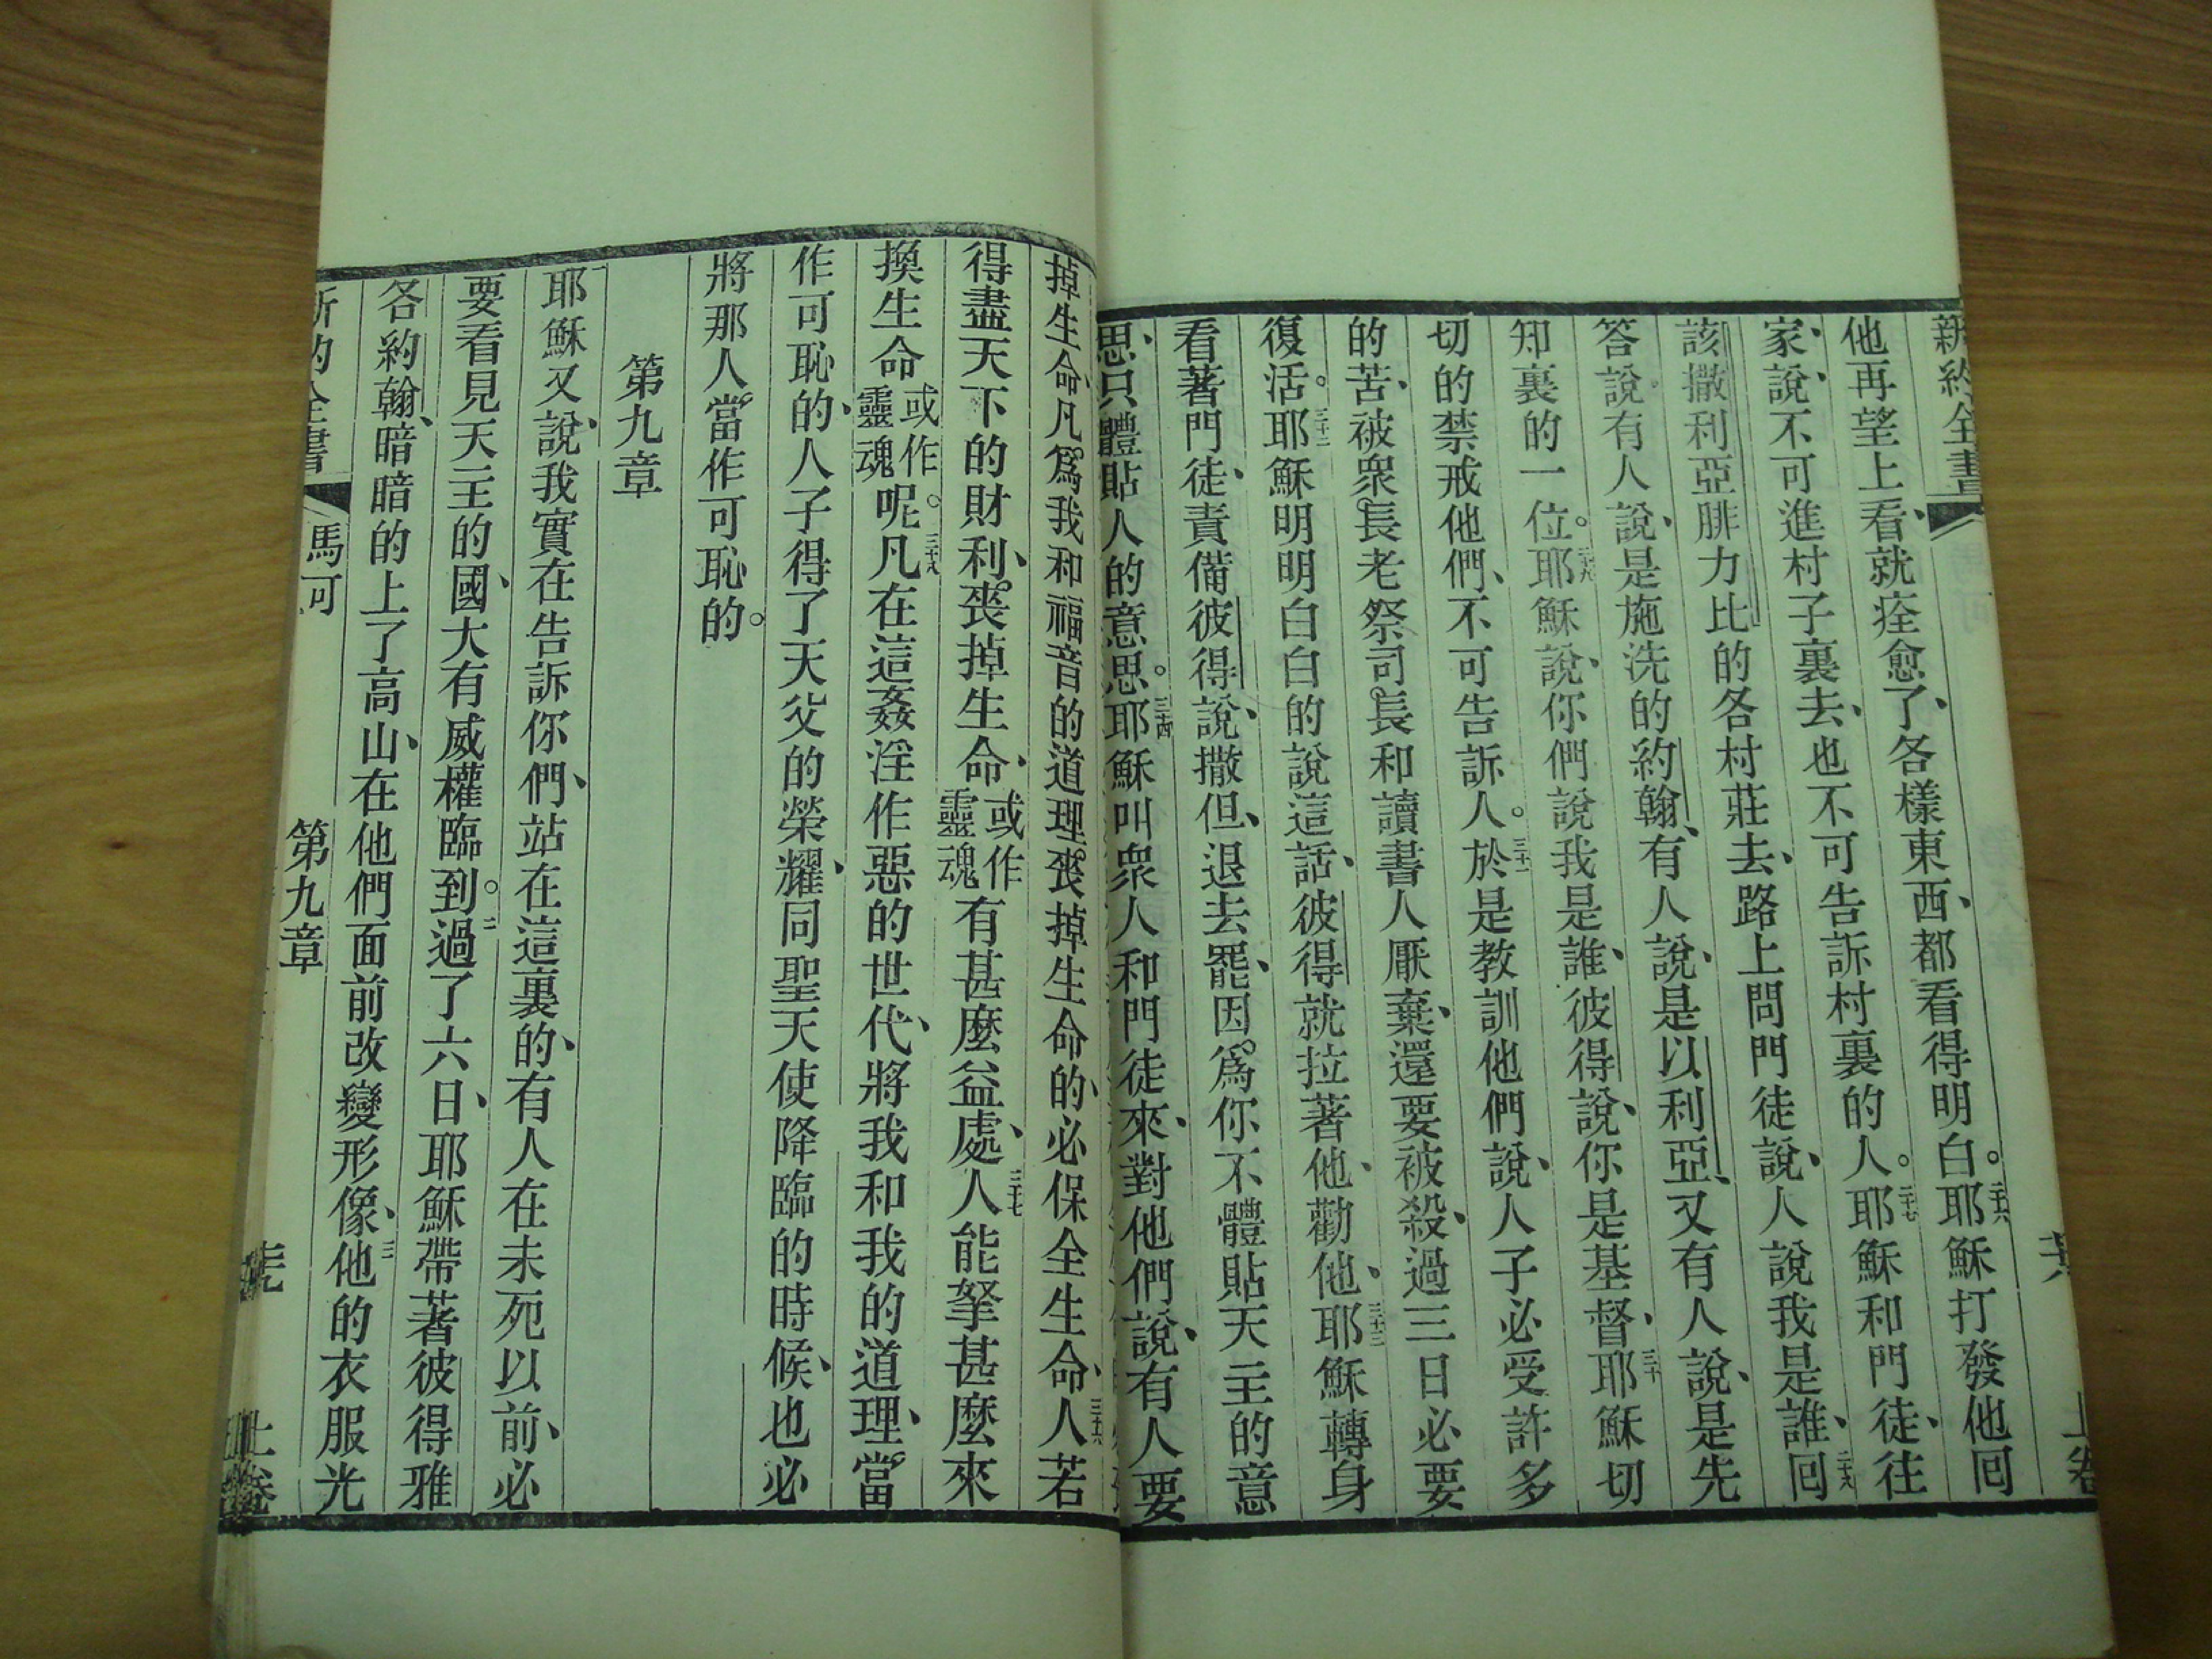 新約全書
上卷
他再望上看、就痊愈了、各樣東西、都看得明白。二十六耶穌打發他回
家、說、不可進村子裏去、也不可告訴村裏的人。二十七耶穌和門徒、往
該撒利亞腓力比的各村莊去、路上問門徒說、人說我是誰、二十八回
答說、有人說、是施洗的約翰、有人說、是以利亞、又有人說、是先
知裏的一位。二十九耶穌說、你們說我是誰、彼得說、你是基督、三十耶穌切
切的禁戒他們、不可告訴人。三十一於是教訓他們說、人子必受許多
的苦、被衆長老祭司長和讀書人厭棄、還要被殺、過三日必要
復活。三十二耶穌明明白白的說這話、彼得就拉著他、勸他、三十三耶穌轉身
看著門徒、責備彼得說、撒但、退去罷、因爲你不體貼天主的意
思、只體貼人的意思。三十四耶穌叫衆人和門徒來、對他們說、有人要
掉生命、凡爲我和福音的道理、喪掉生命的、必保全生命、三十六人若
得盡天下的財利、喪掉生命、或作靈魂有甚麼益處、三十七人能拏甚麼來
換生命或作靈魂呢。三十八凡在這姦淫作惡的世代、將我和我的道理、當
作可恥的、人子得了天父的榮耀、同聖天使降臨的時候、也必
將那人、當作可恥的。
第九章
一耶穌又說、我實在告訴你們、站在這裏的、有人在未死以前、必
要看見天主的國、大有威權臨到。二過了六日、耶穌帶著彼得雅
各約翰、暗暗的上了高山、在他們面前改變形像、三他的衣服光
新約全書
馬可
第九章
上卷